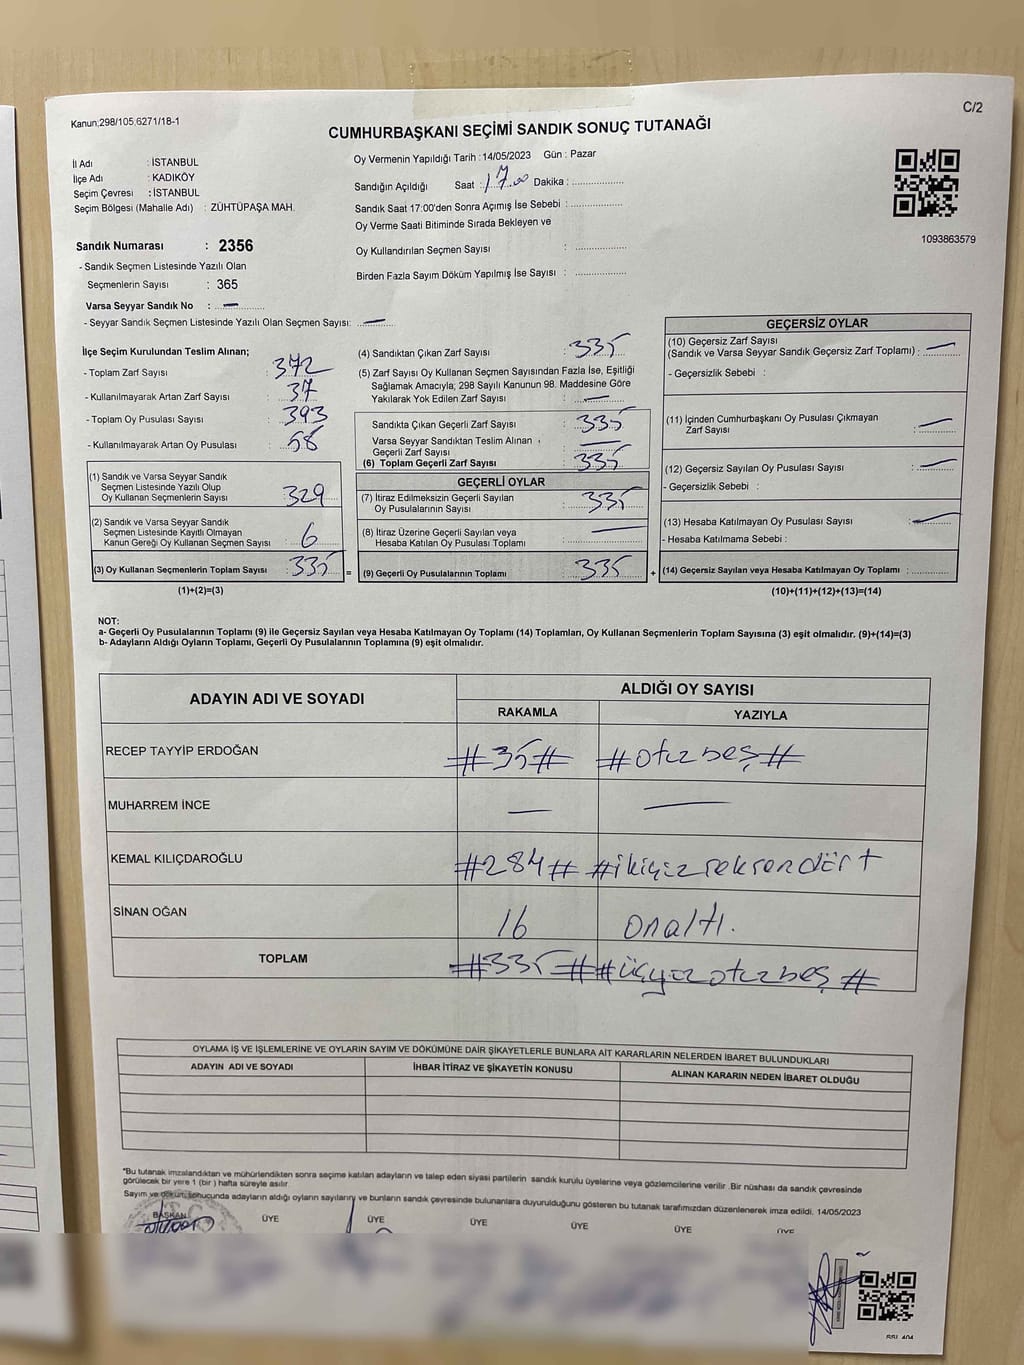 Kanun;298/105,6271/18-1
C/2
CUMHURBAŞKANI SEÇİMİ SANDIK SONUÇ TUTANAĞI
İl Adı : İSTANBUL
İlçe Adı : KADIKÖY
Seçim Çevresi : İSTANBUL
Seçim Bölgesi (Mahalle Adı) : ZÜHTÜPAŞA MAH.
Oy Vermenin Yapıldığı Tarih : 14/05/2023 Gün : Pazar
Sandığın Açıldığı Saat : 17.00 Dakika : ....................
Sandık Saat 17:00'den Sonra Açımış İse Sebebi : ....................
Oy Verme Saati Bitiminde Sırada Bekleyen ve
Oy Kullandırılan Seçmen Sayısı : ....................
Birden Fazla Sayım Döküm Yapılmış İse Sayısı : ....................
1093863579
Sandık Numarası : 2356
- Sandık Seçmen Listesinde Yazılı Olan
Seçmenlerin Sayısı : 365
Varsa Seyyar Sandık No : —
- Seyyar Sandık Seçmen Listesinde Yazılı Olan Seçmen Sayısı: —
İlçe Seçim Kurulundan Teslim Alınan;
- Toplam Zarf Sayısı : 372
- Kullanılmayarak Artan Zarf Sayısı : 37
- Toplam Oy Pusulası Sayısı : 393
- Kullanılmayarak Artan Oy Pusulası : 58
(1) Sandık ve Varsa Seyyar Sandık
Seçmen Listesinde Yazılı Olup
Oy Kullanan Seçmenlerin Sayısı : 329
(2) Sandık ve Varsa Seyyar Sandık
Seçmen Listesinde Kayıtlı Olmayan
Kanun Gereği Oy Kullanan Seçmen Sayısı : 6
(3) Oy Kullanan Seçmenlerin Toplam Sayısı : 335 =
(1)+(2)=(3)
(4) Sandıktan Çıkan Zarf Sayısı : 335
(5) Zarf Sayısı Oy Kullanan Seçmen Sayısından Fazla İse, Eşitliği
Sağlamak Amacıyla; 298 Sayılı Kanunun 98. Maddesine Göre
Yakılarak Yok Edilen Zarf Sayısı : —
Sandıkta Çıkan Geçerli Zarf Sayısı : 335
Varsa Seyyar Sandıktan Teslim Alınan
Geçerli Zarf Sayısı : —
(6) Toplam Geçerli Zarf Sayısı : 335
GEÇERLİ OYLAR
(7) İtiraz Edilmeksizin Geçerli Sayılan
Oy Pusulalarının Sayısı : 335
(8) İtiraz Üzerine Geçerli Sayılan veya
Hesaba Katılan Oy Pusulası Toplamı : —
(9) Geçerli Oy Pusulalarının Toplamı : 335 +
GEÇERSİZ OYLAR
(10) Geçersiz Zarf Sayısı
(Sandık ve Varsa Seyyar Sandık Geçersiz Zarf Toplamı) : —
- Geçersizlik Sebebi :
(11) İçinden Cumhurbaşkanı Oy Pusulası Çıkmayan
Zarf Sayısı : —
(12) Geçersiz Sayılan Oy Pusulası Sayısı : —
- Geçersizlik Sebebi :
(13) Hesaba Katılmayan Oy Pusulası Sayısı : —
- Hesaba Katılmama Sebebi :
(14) Geçersiz Sayılan veya Hesaba Katılmayan Oy Toplamı : ............
(10)+(11)+(12)+(13)=(14)
NOT:
a- Geçerli Oy Pusulalarının Toplamı (9) ile Geçersiz Sayılan veya Hesaba Katılmayan Oy Toplamı (14) Toplamları, Oy Kullanan Seçmenlerin Toplam Sayısına (3) eşit olmalıdır. (9)+(14)=(3)
b- Adayların Aldığı Oyların Toplamı, Geçerli Oy Pusulalarının Toplamına (9) eşit olmalıdır.
ADAYIN ADI VE SOYADI ALDIĞI OY SAYISI
RAKAMLA YAZIYLA
RECEP TAYYİP ERDOĞAN #35# #otuzbeş#
MUHARREM İNCE — —
KEMAL KILIÇDAROĞLU #284# #ikiyüzseksendört
SİNAN OĞAN 16 onaltı.
TOPLAM #335# #üçyüzotuzbeş#
OYLAMA İŞ VE İŞLEMLERİNE VE OYLARIN SAYIM VE DÖKÜMÜNE DAİR ŞİKAYETLERLE BUNLARA AİT KARARLARIN NELERDEN İBARET BULUNDUKLARI
ADAYIN ADI VE SOYADI İHBAR İTİRAZ VE ŞİKAYETİN KONUSU ALINAN KARARIN NEDEN İBARET OLDUĞU
"Bu tutanak imzalandıktan ve mühürlendikten sonra seçime katılan adayların ve talep eden siyasi partilerin sandık kurulu üyelerine veya gözlemcilerine verilir .Bir nüshası da sandık çevresinde
görülecek bir yere 1 (bir ) hafta süreyle asılır.
Sayım ve döküm sonucunda adayların aldığı oyların sayılarını ve bunların sandık çevresinde bulunanlara duyurulduğunu gösteren bu tutanak tarafımızdan düzenlenerek imza edildi. 14/05/2023
BAŞKAN ÜYE ÜYE ÜYE ÜYE ÜYE ÜYE